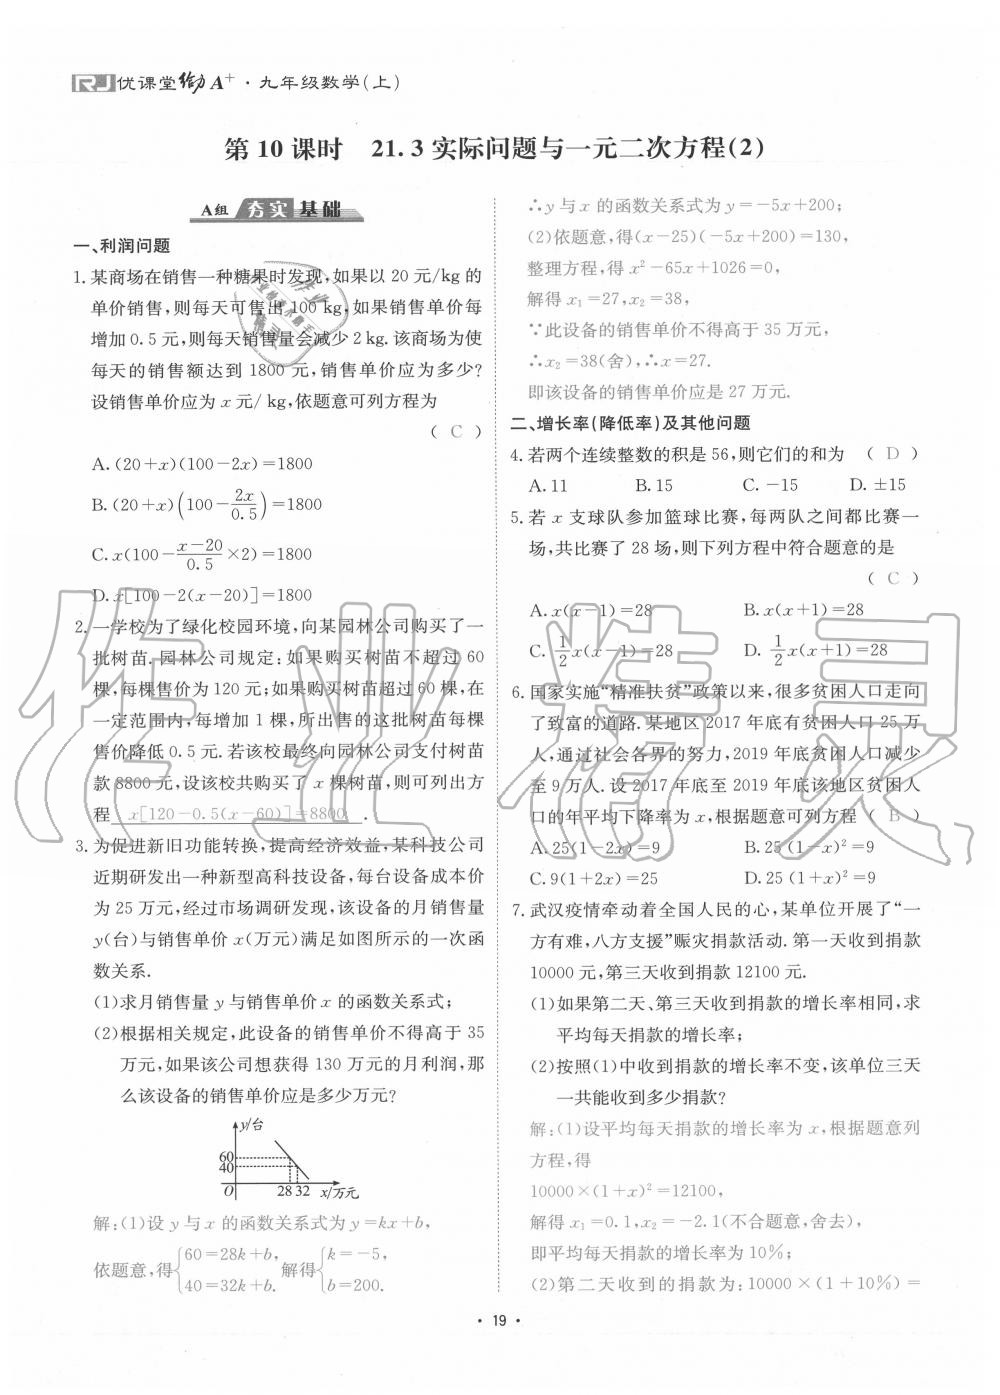 RJ 优课堂给力A⁺·九年级数学(上)
第10课时 21.3实际问题与一元二次方程(2)
A组 夯实 基础
一、利润问题
1.某商场在销售一种糖果时发现,如果以20元/kg的
单价销售,则每天可售出100 kg,如果销售单价每
增加0.5元,则每天销售量会减少2 kg.该商场为使
每天的销售额达到1800元,销售单价应为多少?
设销售单价应为x元/kg,依题意可列方程为
( C )
A.(20+x)(100-2x)=1800
B.(20+x)(100-2x/0.5)=1800
C.x(100-(x-20)/0.5×2)=1800
D.x[100-2(x-20)]=1800
2.一学校为了绿化校园环境,向某园林公司购买了一
批树苗.园林公司规定:如果购买树苗不超过60
棵,每棵售价为120元;如果购买树苗超过60棵,在
一定范围内,每增加1棵,所出售的这批树苗每棵
售价降低0.5元.若该校最终向园林公司支付树苗
款8800元,设该校共购买了x棵树苗,则可列出方
程 x[120-0.5(x-60)]=8800 .
3.为促进新旧功能转换,提高经济效益,某科技公司
近期研发出一种新型高科技设备,每台设备成本价
为25万元,经过市场调研发现,该设备的月销售量
y(台)与销售单价x(万元)满足如图所示的一次函
数关系.
(1)求月销售量y与销售单价x的函数关系式;
(2)根据相关规定,此设备的销售单价不得高于35
万元,如果该公司想获得130万元的月利润,那
么该设备的销售单价应是多少万元?
y/台
60
40
O 28 32 x/万元
解:(1)设y与x的函数关系式为y=kx+b,
依题意,得{60=28k+b, 40=32k+b. 解得{k=-5, b=200.
∴y与x的函数关系式为y=-5x+200;
(2)依题意,得(x-25)(-5x+200)=130,
整理方程,得x²-65x+1026=0,
解得x₁=27,x₂=38,
∵此设备的销售单价不得高于35万元,
∴x₂=38(舍),∴x=27.
即该设备的销售单价应是27万元.
二、增长率(降低率)及其他问题
4.若两个连续整数的积是56,则它们的和为 ( D )
A.11 B.15 C.-15 D.±15
5.若x支球队参加篮球比赛,每两队之间都比赛一
场,共比赛了28场,则下列方程中符合题意的是
( C )
A.x(x-1)=28 B.x(x+1)=28
C.1/2x(x-1)=28 D.1/2x(x+1)=28
6.国家实施“精准扶贫”政策以来,很多贫困人口走向
了致富的道路.某地区2017年底有贫困人口25万
人,通过社会各界的努力,2019年底贫困人口减少
至9万人.设2017年底至2019年底该地区贫困人
口的年平均下降率为x,根据题意可列方程( B )
A.25(1-2x)=9 B.25(1-x)²=9
C.9(1+2x)=25 D.25(1+x)²=9
7.武汉疫情牵动着全国人民的心,某单位开展了“一
方有难,八方支援”赈灾捐款活动.第一天收到捐款
10000元,第三天收到捐款12100元.
(1)如果第二天、第三天收到捐款的增长率相同,求
平均每天捐款的增长率;
(2)按照(1)中收到捐款的增长率不变,该单位三天
一共能收到多少捐款?
解:(1)设平均每天捐款的增长率为x,根据题意列
方程,得
10000×(1+x)²=12100,
解得x₁=0.1,x₂=-2.1(不合题意,舍去),
即平均每天捐款的增长率为10%;
(2)第二天收到的捐款为:10000×(1+10%)=
· 19 ·
作业精灵